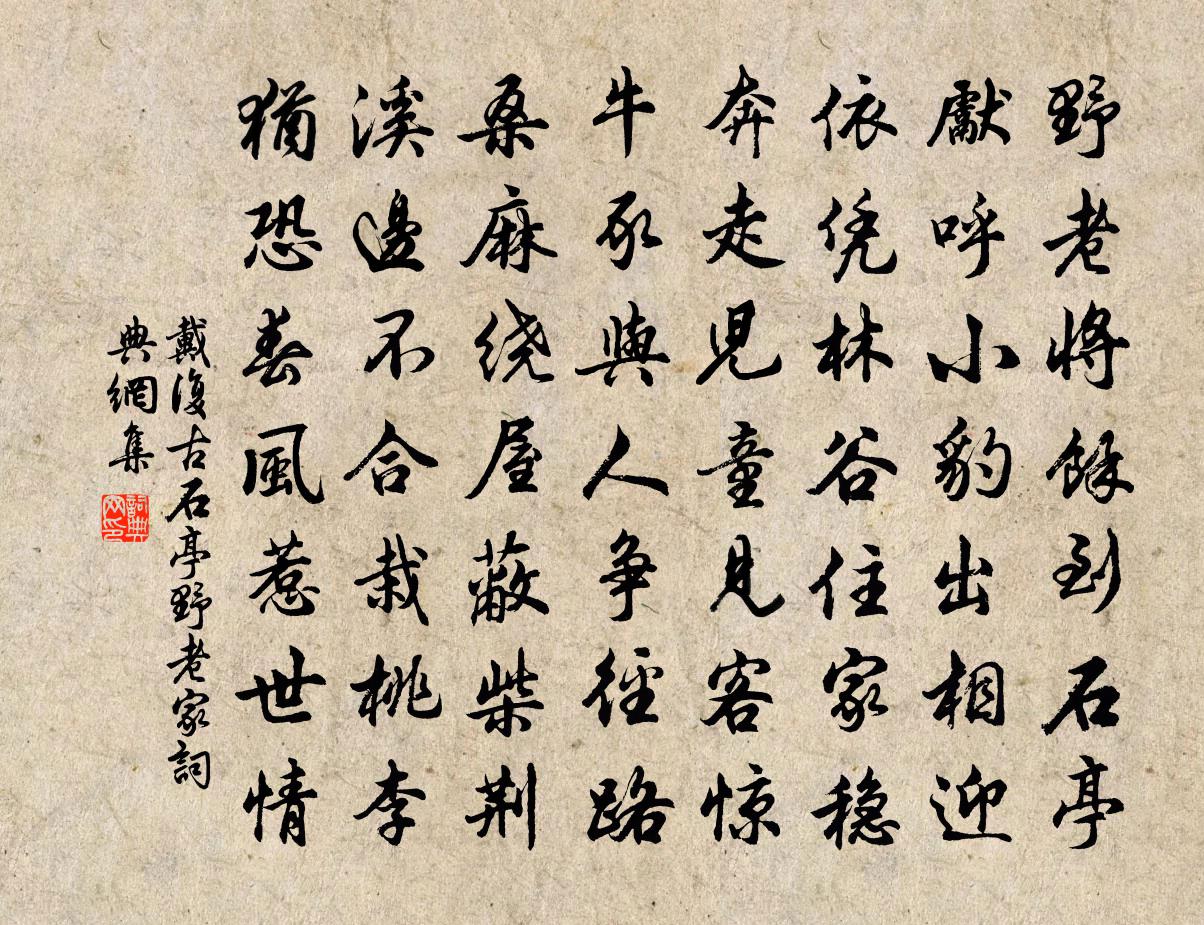 野老將餘到石亭
獻呼小豹出相迎
依凭林谷住家稳
奔走兒童見客惊
牛豕與人爭徑路
桑麻绕屋蔽柴荆
溪邊不合栽桃李
猶恐春風惹世情
戴復古石亭野老家詞
典網集
詞典
网印